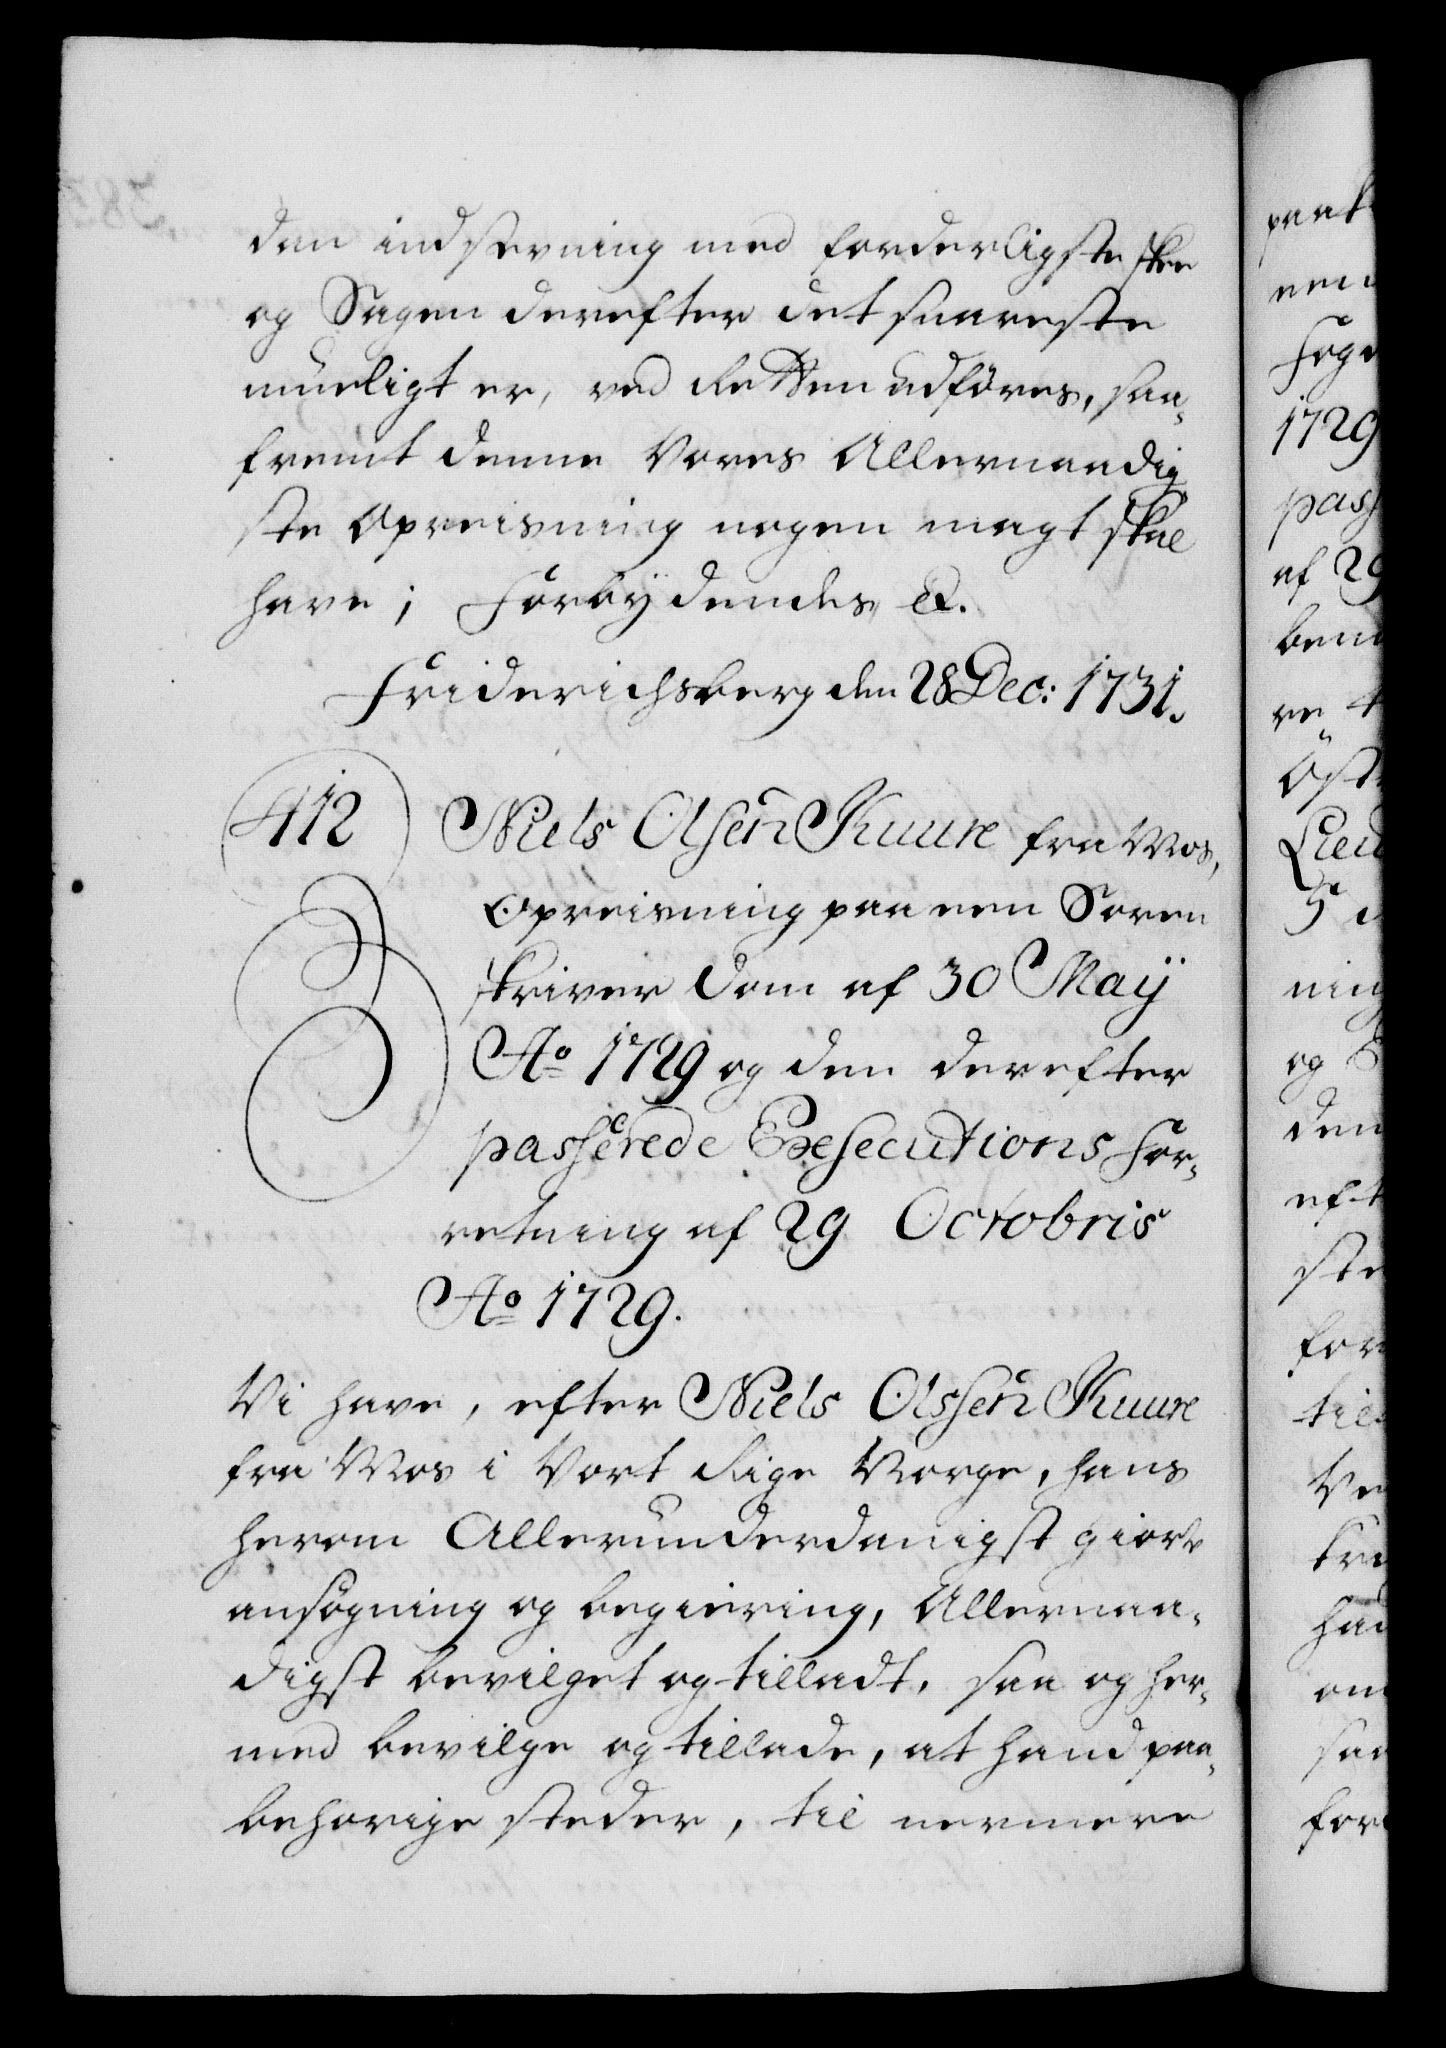 den indstevning med forderligste skee
og Sagen derefter det snareste
mueligt er, ved Retten udföres, saa-
fremt denne Vores Allernaadig
ste Opreisning nogen magt skal
have; Forbydendes &.
Friderichsberg den 28 Dec: 1731.
412
Niels Olsen Kuure fra Mos,
Opreisning paa een Soren
skriver Dom af 30 Maÿ
Ao 1729 og den derefter
passerede Execeutions For-
retning af 29 Octobris
Ao 1729.
Vi have, efter Niels Olssen Kuure
fra Mos i Vort Rige Norge, hans
herom Allerunderdanigst giorte
ansögning og begiering, Allernaa-
digst bevilget og tilladt, saa og her-
med bevilge og tillade, at hand paa-
behörige steder, til nermere
paak
een
Foge
1729
pass
af 29
bem
re t
Öst
Lieu
5
ning
og
den
eft
ste
for
till
Ve
kra
had
om
saa
for